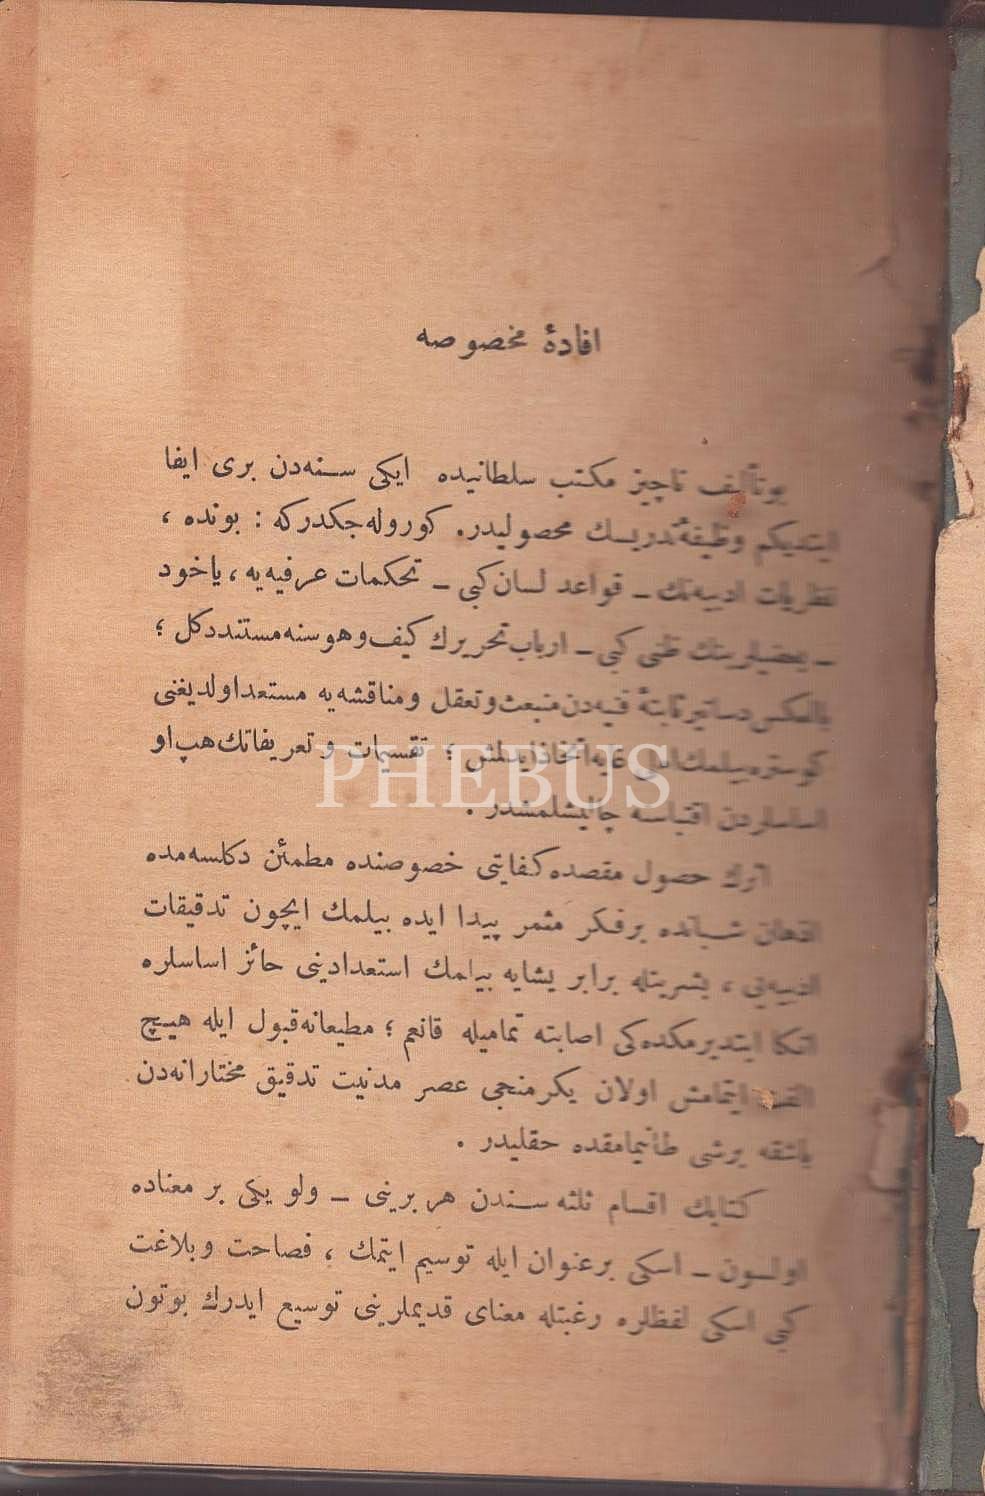 افادهٔ مخصوصه
بوتألیف ناچیز مكتب سلطانیده ایكی سنه‌دن بری ایفا
ایتدیكم وظیفهٔ تدریسك محصولیدر. كوروله‌جكدركه : بونده ،
نظریات ادبیه‌نك ـ قواعد لسان كبی ـ تحكمات عرفیه‌یه ، یاخود
ـ بعضیلرینك ظنی كبی ـ ارباب تحریرك كیف و هوسنه مستنددكل ؛
بالعكس دساتیر ثابتهٔ فنیه‌دن منبعث و تعقل و مناقشه‌یه مستعد اولدیغنی
كوستره‌بیلمك غایه اتخاذ ایدلمش ؛ تقسیمات و تعریفاتك هپ او
اساسلردن اقتباسنه چالیشلمشدر .
اثرك حصول مقصده كفایتی خصوصنده مطمئن دكلسه‌مده
اذهان شبانده برفكر مثمر پیدا ایده بیلمك ایچون تدقیقات
ادبیه‌یی ، بشریتله برابر یشایه بیلمك استعدادینی حائز اساسلره
اتكا ایتدیرمكده‌كی اصابته تمامیله قانعم ؛ مطیعانه قبول ایله هیچ
الفت ایتمامش اولان یكرمنجی عصر مدنیت تدقیق مختارانه‌دن
باشقه برشی طانیمامقده حقلیدر .
كتابك اقسام ثلثه سندن هر برینی ـ ولو یكی بر معناده
اولسون ـ اسكی برعنوان ایله توسیم ایتمك ، فصاحت و بلاغت
كبی اسكی لفظلره رغبتله معنای قدیملرینی توسیع ایدرك بوتون
PHEBUS